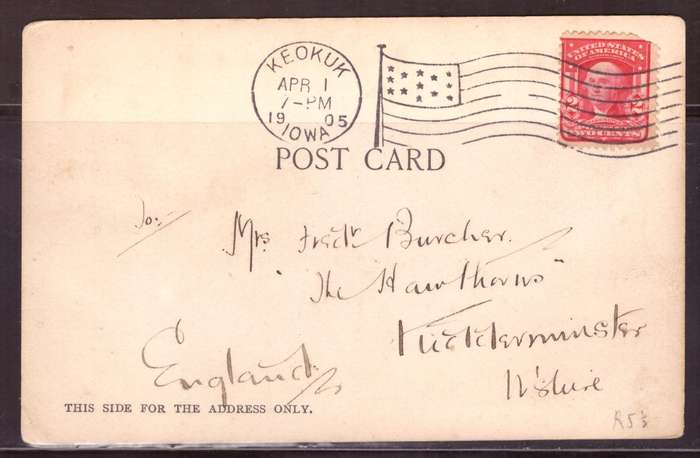 KEOKUK
APR 1
7-PM
1905
IOWA
UNITED STATES
OF AMERICA
2 2
TWO CENTS
POST CARD
To:-
Mrs. Fredk Burcher.
"The Hawthorns"
Kidderminster
W'shire
England
THIS SIDE FOR THE ADDRESS ONLY.